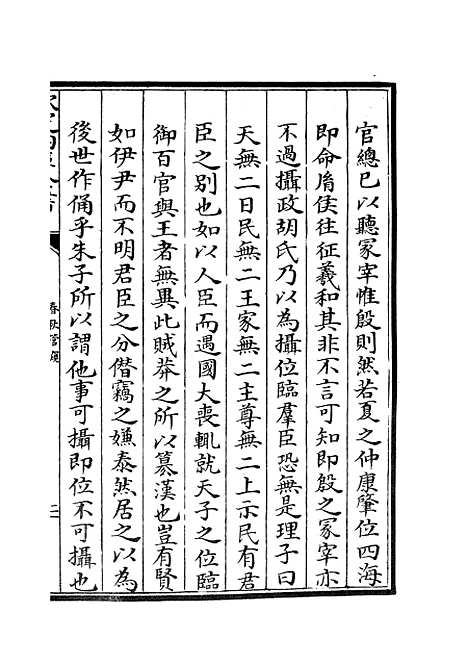 官總已以聽冢宰惟殷則然若夏之仲康肇位四海
即命胤侯往征羲和其非不言可知即殷之冢宰亦
不過攝政胡氏乃以為攝位臨羣臣恐無是理子曰
天無二日民無二王家無二主尊無二上示民有君
臣之別也如以人臣而遇國大喪輒就天子之位臨
御百官與王者無異此賊莽之所以篡漢也豈有賢
如伊尹而不明君臣之分僭竊之嫌泰然居之以為
後世作俑乎朱子所以謂他事可攝即位不可攝也
春秋管窺
二